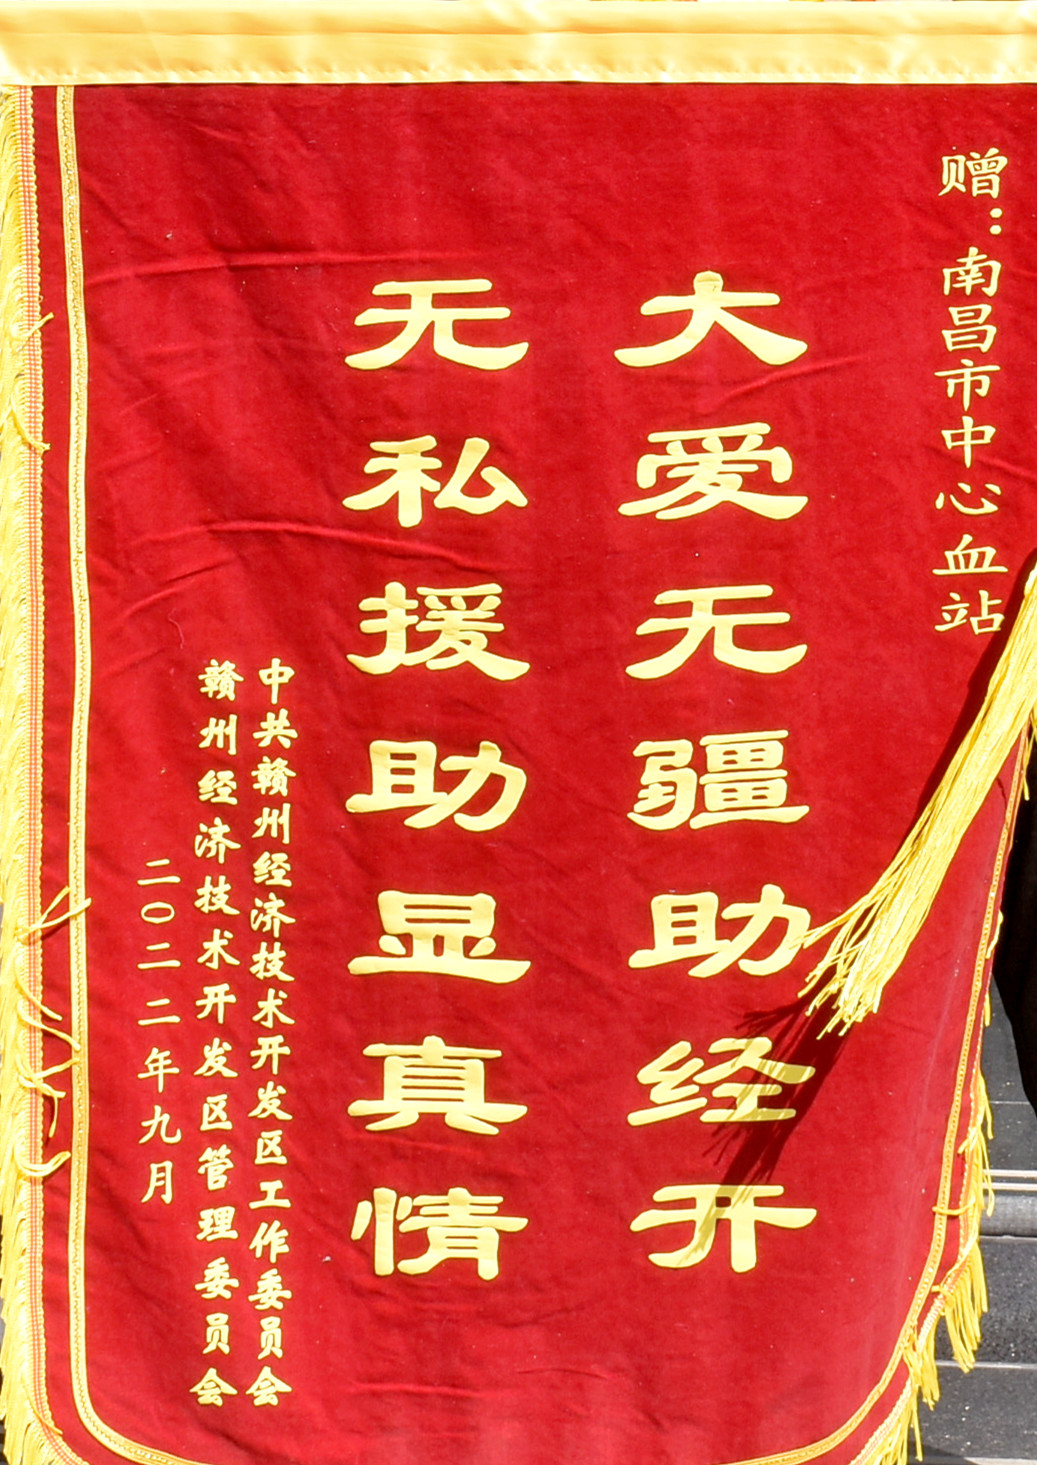 赠：南昌市中心血站
大爱无疆助经开
无私援助显真情
中共赣州经济技术开发区工作委员会
赣州经济技术开发区管理委员会
二〇二二年九月